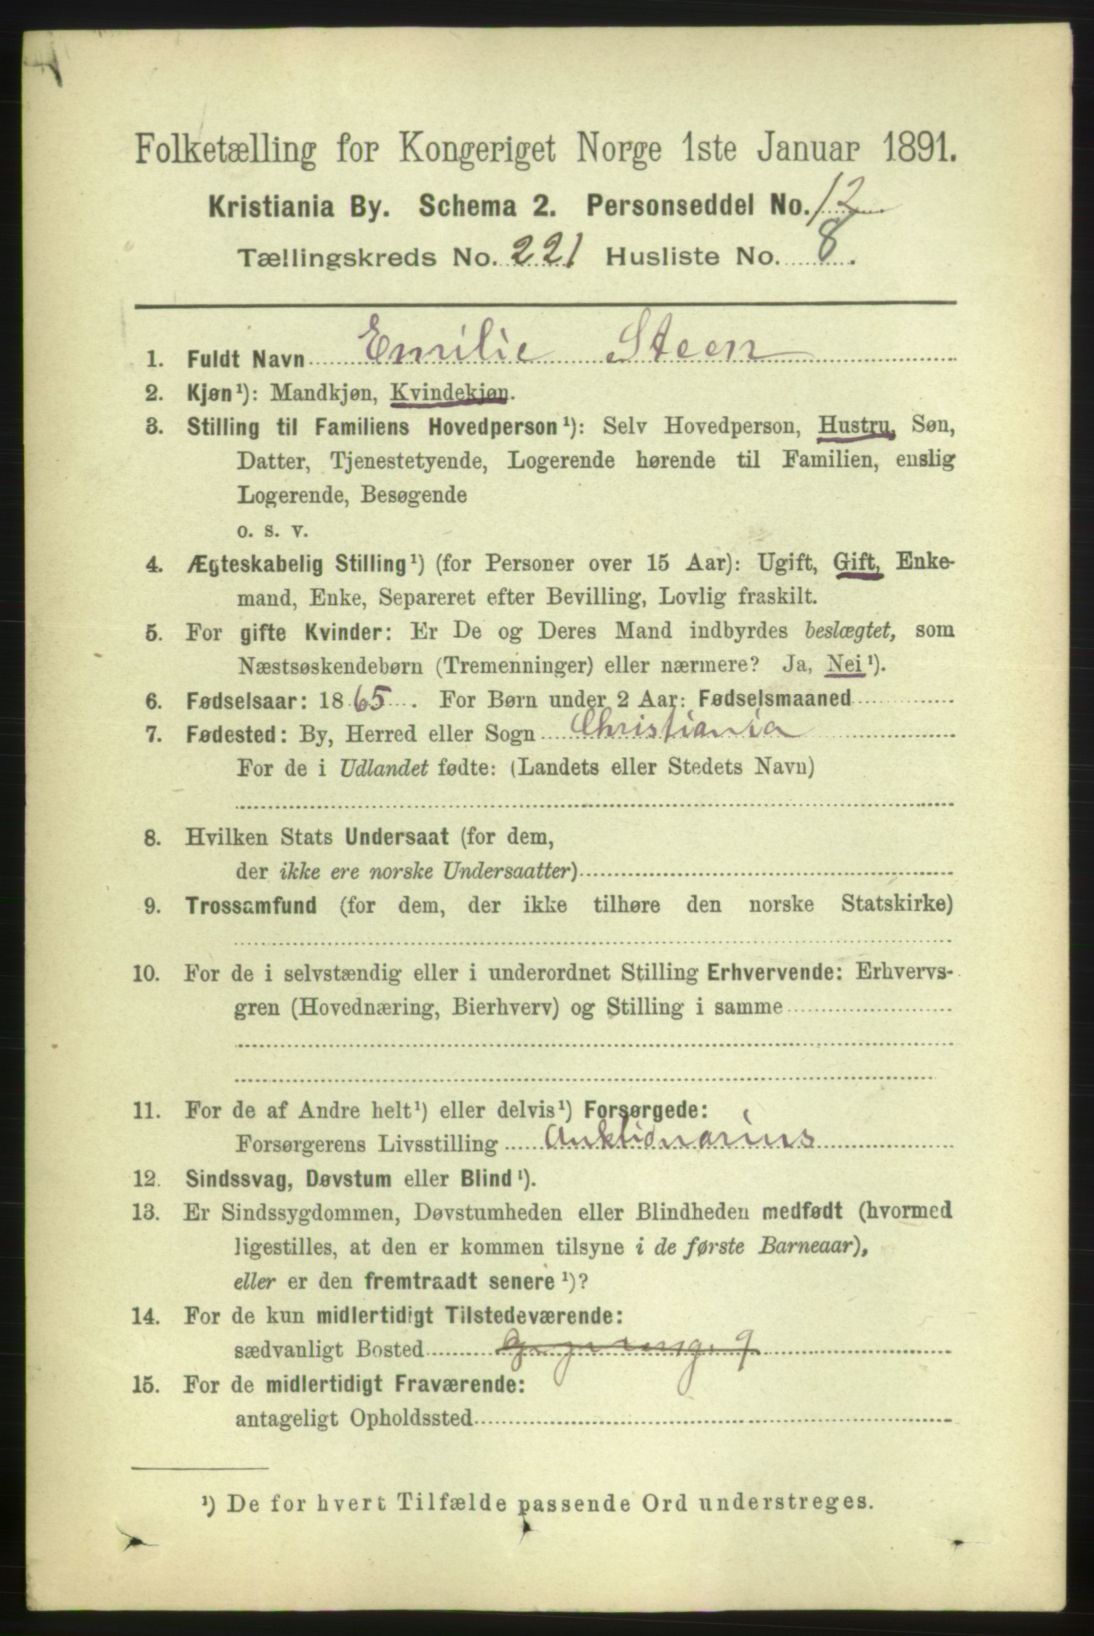 Folketælling for Kongeriget Norge 1ste Januar 1891.
Kristiania By. Schema 2. Personseddel No. 12
Tællingskreds No. 221 Husliste No. 8.
1. Fuldt Navn Emilie Steen
2. Kjøn¹): Mandkjøn, Kvindekjøn.
3. Stilling til Familiens Hovedperson¹): Selv Hovedperson, Hustru, Søn,
Datter, Tjenestetyende, Logerende hørende til Familien, enslig
Logerende, Besøgende
o. s. v.
4. Ægteskabelig Stilling¹) (for Personer over 15 Aar): Ugift, Gift, Enke-
mand, Enke, Separeret efter Bevilling, Lovlig fraskilt.
5. For gifte Kvinder: Er De og Deres Mand indbyrdes beslægtet, som
Næstsøskendebørn (Tremenninger) eller nærmere? Ja, Nei¹).
6. Fødselsaar: 1865. For Børn under 2 Aar: Fødselsmaaned
7. Fødested: By, Herred eller Sogn Christiania
For de i Udlandet fødte: (Landets eller Stedets Navn)
8. Hvilken Stats Undersaat (for dem,
der ikke ere norske Undersaatter)
9. Trossamfund (for dem, der ikke tilhøre den norske Statskirke)
10. For de i selvstændig eller i underordnet Stilling Erhvervende: Erhvervs-
gren (Hovednæring, Bierhverv) og Stilling i samme
11. For de af Andre helt¹) eller delvis¹) Forsørgede:
Forsørgerens Livsstilling Auktionarius
12. Sindssvag, Døvstum eller Blind¹).
13. Er Sindssygdommen, Døvstumheden eller Blindheden medfødt (hvormed
ligestilles, at den er kommen tilsyne i de første Barneaar),
eller er den fremtraadt senere¹)?
14. For de kun midlertidigt Tilstedeværende:
sædvanligt Bosted 9
15. For de midlertidigt Fraværende:
antageligt Opholdssted
¹) De for hvert Tilfælde passende Ord understreges.